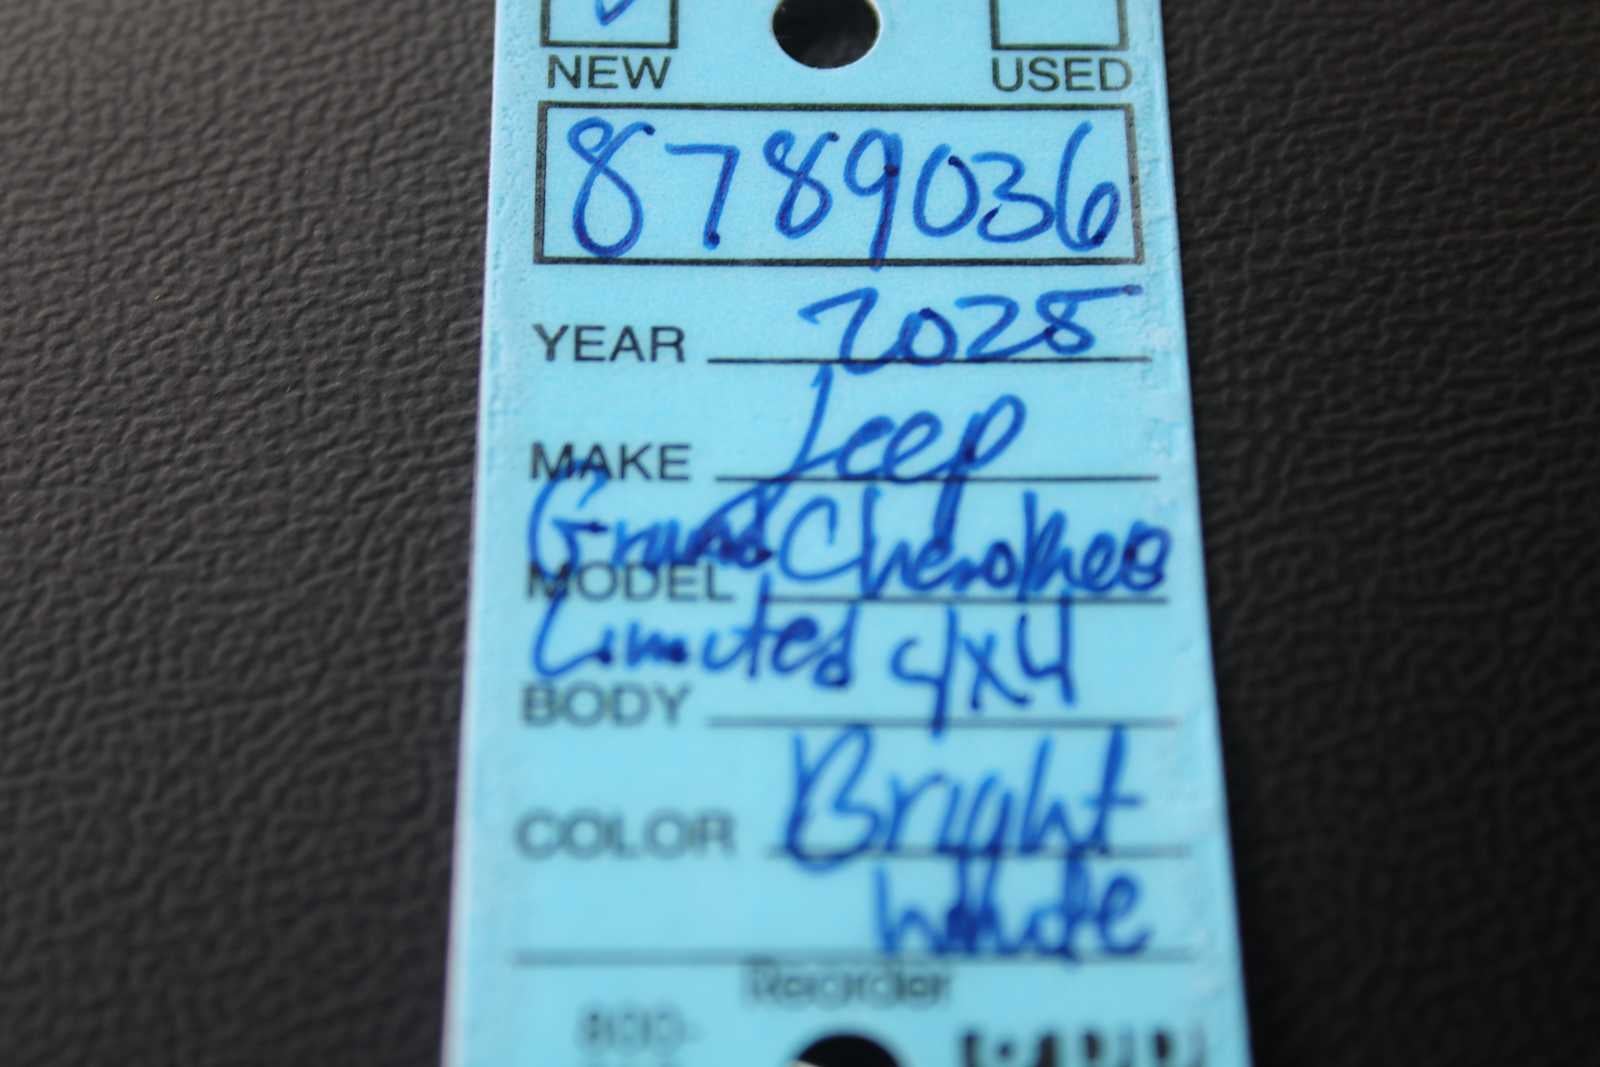 NEW USED
8789036
YEAR 2025
MAKE Jeep
MODEL Grand Cherokee
Limited 4x4
BODY
COLOR Bright
White
Reorder
800-